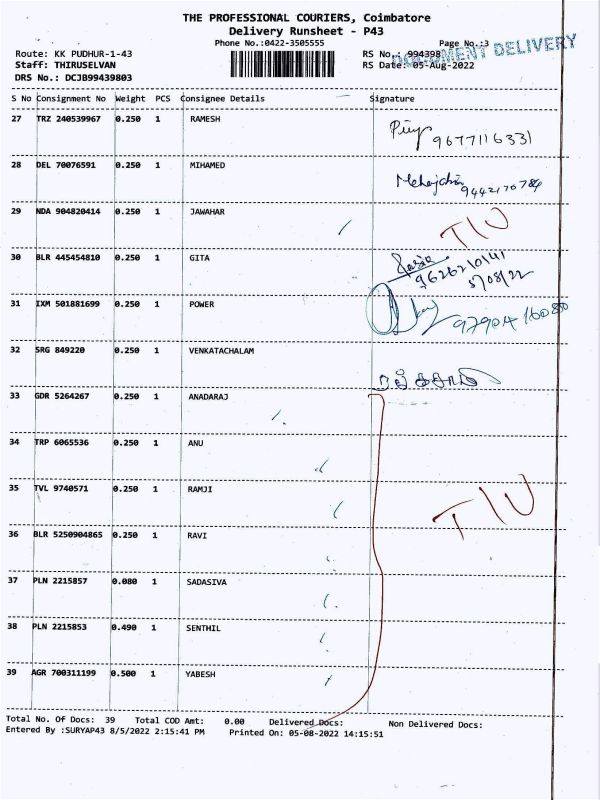 THE PROFESSIONAL COURIERS, Coimbatore
Delivery Runsheet - P43
Phone No.:0422-3505555
Page No.:3
DOCUMENT DELIVERY
Route: KK PUDHUR-1-43
RS No.: 994398
Staff: THIRUSELVAN
RS Date: 05-Aug-2022
DRS No.: DCJB99439803
S No Consignment No Weight PCS Consignee Details Signature
27 TRZ 240539967 0.250 1 RAMESH
9677116331
28 DEL 70076591 0.250 1 MIHAMED
9442170784
29 NDA 904820414 0.250 1 JAWAHAR
30 BLR 445454810 0.250 1 GITA
9626210141
5/08/22
31 IXM 501881699 0.250 1 POWER
32 SRG 849220 0.250 1 VENKATACHALAM
33 GDR 5264267 0.250 1 ANADARAJ
34 TRP 6065536 0.250 1 ANU
35 TVL 9740571 0.250 1 RAMJI
36 BLR 5250904865 0.250 1 RAVI
37 PLN 2215857 0.080 1 SADASIVA
38 PLN 2215853 0.490 1 SENTHIL
39 AGR 700311199 0.500 1 YABESH
Total No. Of Docs: 39 Total COD Amt: 0.00 Delivered Docs: Non Delivered Docs:
Entered By :SURYAP43 8/5/2022 2:15:41 PM Printed On: 05-08-2022 14:15:51